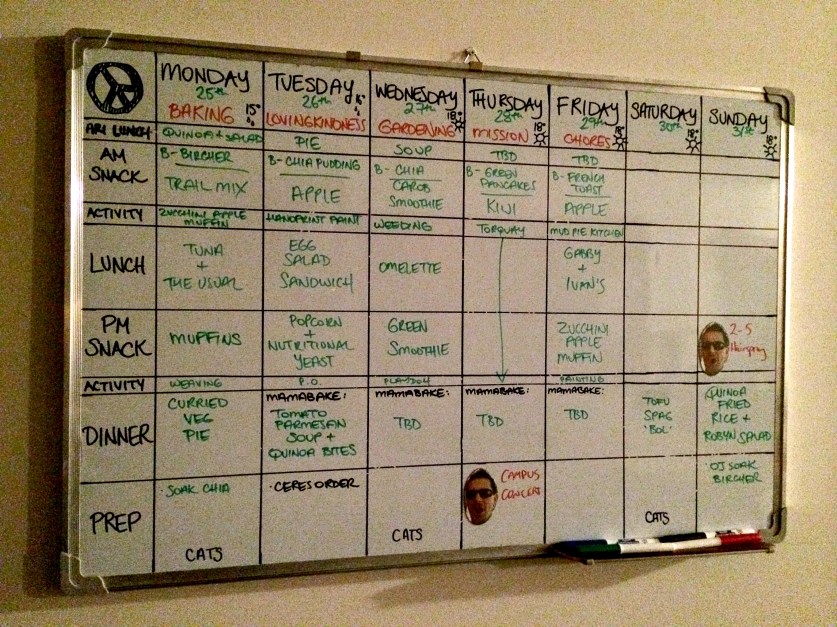 MONDAY
25th
BAKING 15°
TUESDAY
26th
LOVINGKINDNESS
WEDNESDAY
27th 18°
GARDENING
THURSDAY
28th
MISSION 18°
FRIDAY
29th
CHORES
SATURDAY
30th 18°
SUNDAY
31st
AM LUNCH
QUINOA + SALAD
PIE
SOUP
TBD
TBD
AM
SNACK
B- BIRCHER
TRAIL MIX
B- CHIA PUDDING
APPLE
B- CHIA
CAROB
SMOOTHIE
B- GREEN
PANCAKES
KIWI
B- FRENCH
TOAST
APPLE
ACTIVITY
ZUCCHINI APPLE
MUFFIN
HANDPRINT PAINT
WEEDING
TORQUAY
MUD PIE KITCHEN
LUNCH
TUNA
+
THE USUAL
EGG
SALAD
SANDWICH
OMELETTE
GABBY
+
IVAN'S
PM
SNACK
MUFFINS
POPCORN
+
NUTRITIONAL
YEAST
GREEN
SMOOTHIE
ZUCCHINI
APPLE
MUFFIN
2-5
ACTIVITY
WEAVING
P.O.
PLAYDOH
PAINTING
DINNER
CURRIED
VEG
PIE
MAMABAKE:
TOMATO
PARMESAN
SOUP +
QUINOA BITES
MAMABAKE:
TBD
MAMABAKE:
TBD
MAMABAKE:
TBD
TOFU
SPAG
'BOL'
QUINOA
FRIED
RICE +
ROBYN SALAD
PREP
·SOAK CHIA
CATS
·CERES ORDER
CATS
CAMPUS
CONCERT
CATS
·OJ SOAK
BIRCHER